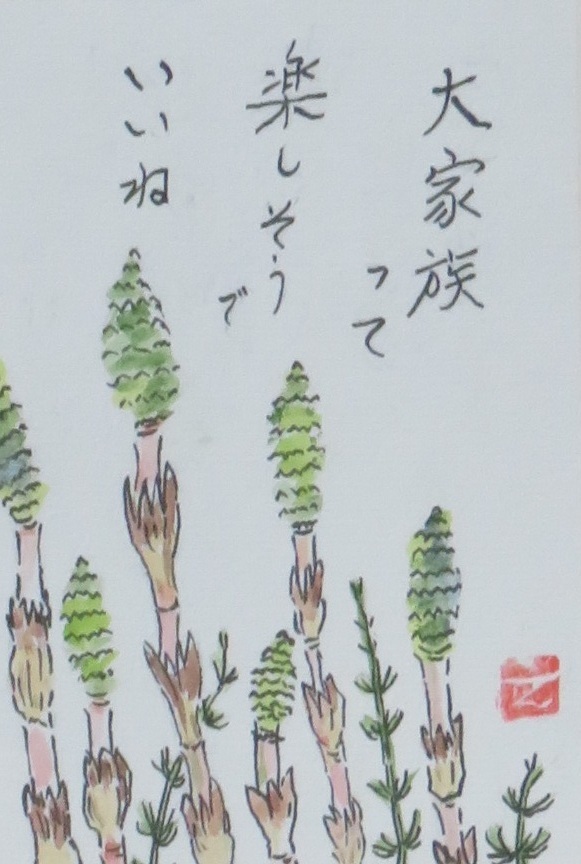 大家族
って
楽しそう
で
いいね